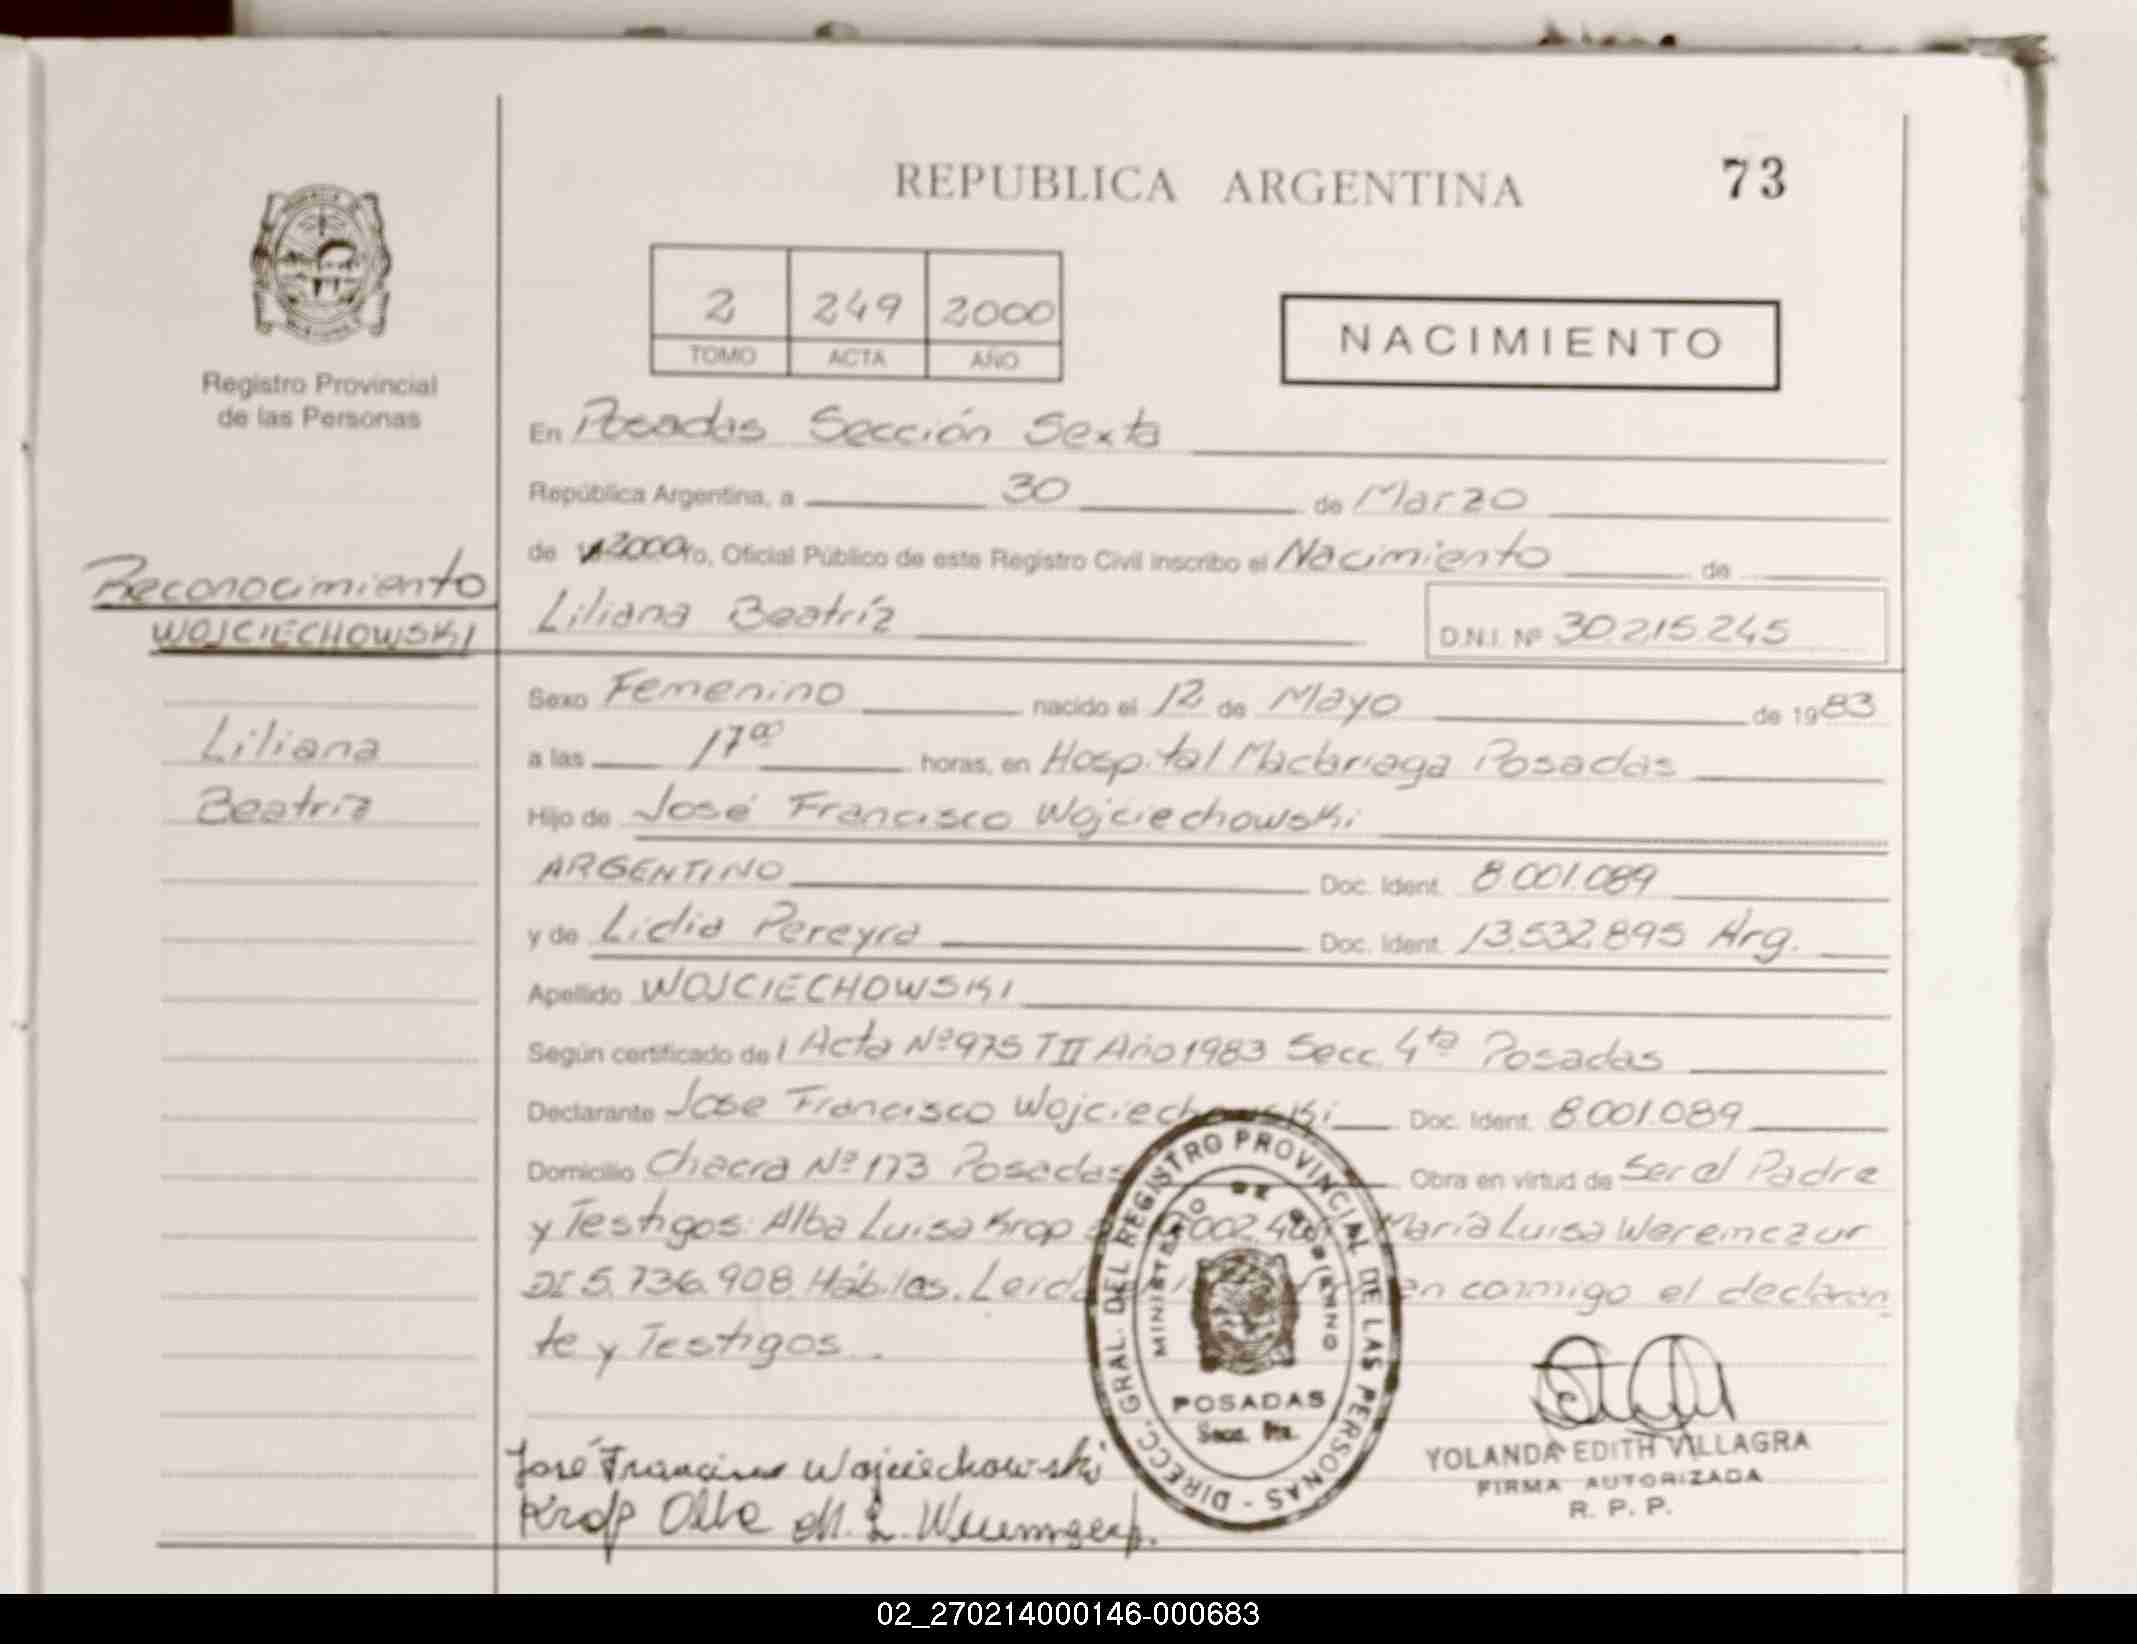 REPUBLICA ARGENTINA
73
2 249 2000
TOMO ACTA AÑO
NACIMIENTO
Registro Provincial
de las Personas
Reconocimiento
WOJCIECHOWSKI
Liliana
Beatríz
En Posadas Sección Sexta
República Argentina, a 30 de Marzo
de 2000 yo, Oficial Público de este Registro Civil inscribo el Nacimiento de
Liliana Beatríz D.N.I. Nº 30215245
Sexo Femenino nacido el 12 de Mayo de 1983
a las 17⁰⁰ horas, en Hospital Madariaga Posadas
Hijo de José Francisco Wojciechowski
ARGENTINO Doc. Ident. 8.001.089
y de Lidia Pereyra Doc. Ident. 13.532.895 Arg.
Apellido WOJCIECHOWSKI
Según certificado de Acta Nº 975 T II Año 1983 Secc. 4ta Posadas
Declarante Jose Francisco Wojciechowski Doc. Ident. 8.001.089
Domicilio Chacra Nº 173 Posadas Obra en virtud de Ser el Padre
y Testigos: Alba Luisa Krop María Luisa Weremczur
DI 5.736.908 Hábiles. Leida conmigo el declaran
te y Testigos.
DIRECC. GRAL. DEL REGISTRO PROVINCIAL DE LAS PERSONAS
MINISTERIO DE GOBIERNO
POSADAS
José Francisco Wojciechowski
Krop Alba M. L.
YOLANDA EDITH VILLAGRA
FIRMA AUTORIZADA
R. P. P.
02_270214000146-000683